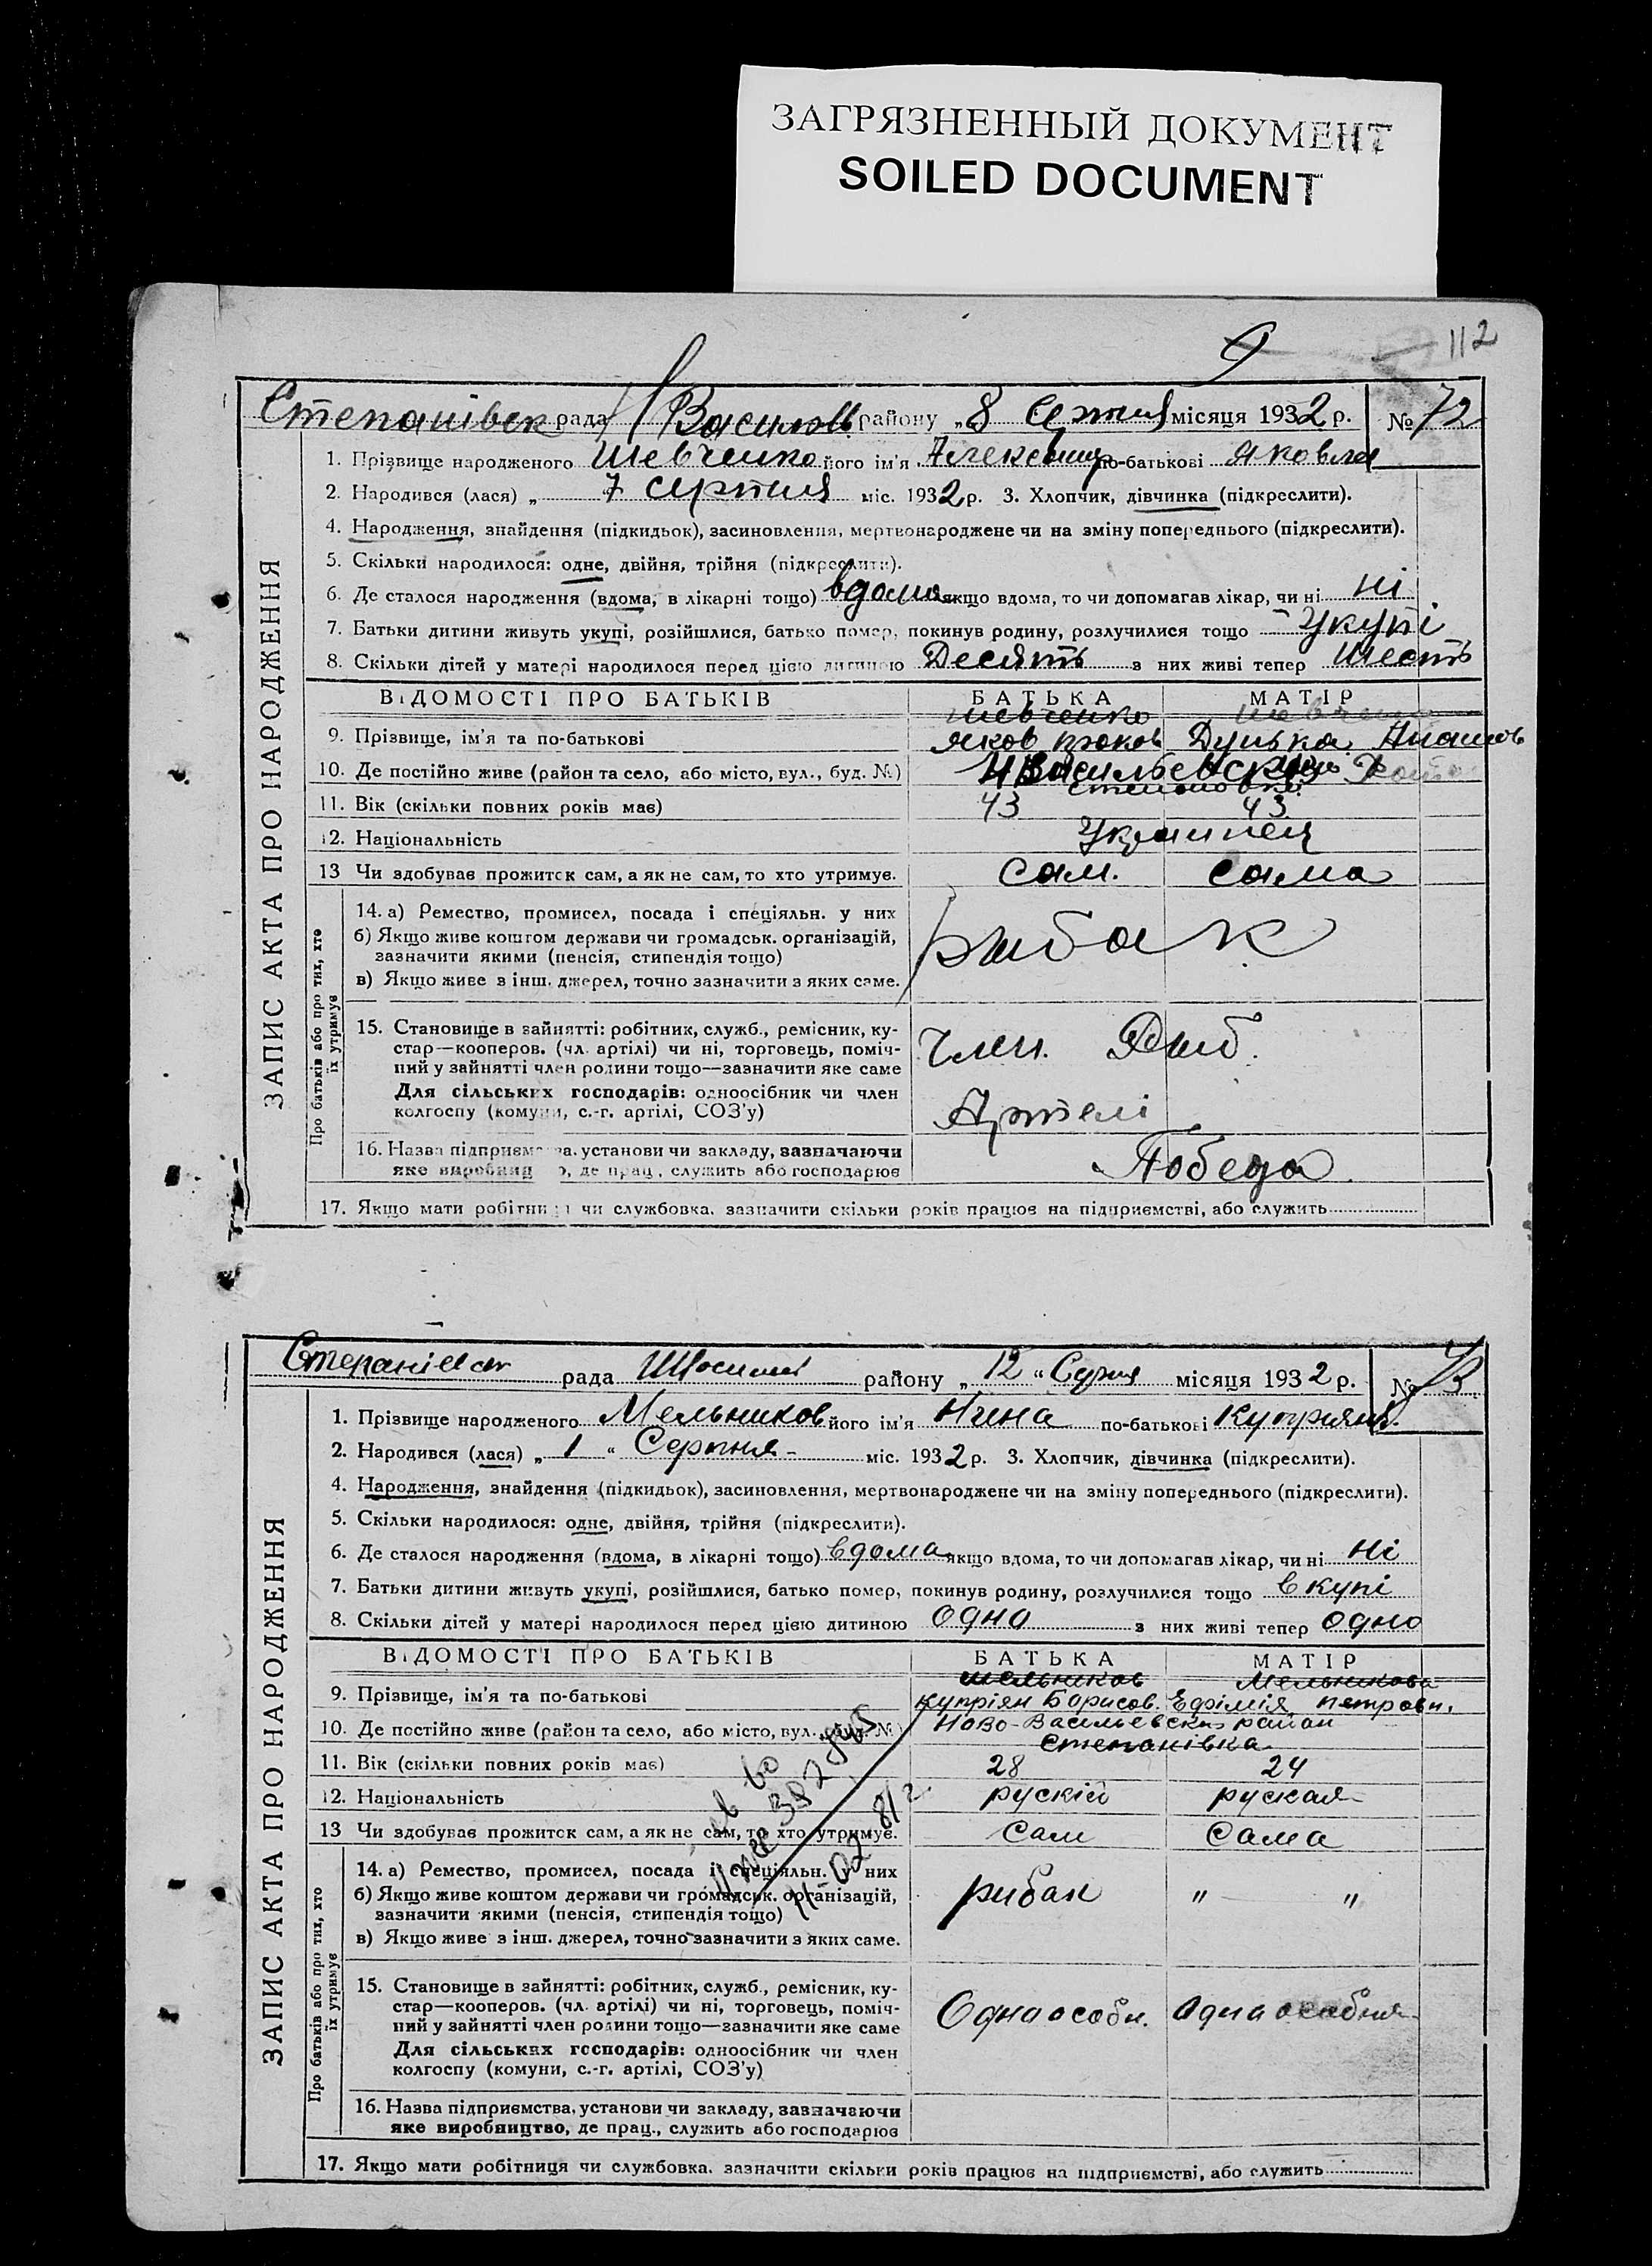 ЗАГРЯЗНЕННЫЙ ДОКУМЕНТ
SOILED DOCUMENT
9
112
Степанівск рада Н Василів району „8 Серпня місяця 1932 р. № 72
1. Прізвище народженого Шевченко його ім'я по-батькові Яковлев
2. Народився (лася) „ 7 серпня міс. 1932 р. 3. Хлопчик, дівчинка (підкреслити).
4. Народження, знайдення (підкидьок), засиновлення, мертвонароджене чи на зміну попереднього (підкреслити).
5. Скільки народилося: одне, двійня, трійня (підкреслити).
6. Де сталося народження (вдома, в лікарні тощо) вдома якщо вдома, то чи допомагав лікар, чи ні ні
7. Батьки дитини живуть укупі, розійшлися, батько помер, покинув родину, розлучилися тощо Укупі
8. Скільки дітей у матері народилося перед цією дитиною Десять з них живі тепер Шесть
ЗАПИС АКТА ПРО НАРОДЖЕННЯ
ВІДОМОСТІ ПРО БАТЬКІВ БАТЬКА МАТІР
Шевченко Шевченко
9. Прізвище, ім'я та по-батькові Яков Дунька
10. Де постійно живе (район та село, або місто, вул., буд. №) Н Васильевский
Степановка
11. Вік (скільки повних років має) 43 43
12. Національність Украинец
13 Чи здобував прожиток сам, а як не сам, то хто утримує. Сам. Сама
Про батьків або про тих, хто їх утримує
14. а) Ремество, промисел, посада і спеціяльн. у них
б) Якщо живе коштом держави чи громадськ. організацій, рибак
зазначити якими (пенсія, стипендія тощо)
в) Якщо живе з інш. джерел, точно зазначити з яких саме.
15. Становище в зайнятті: робітник, служб., ремісник, ку-
стар—кооперов. (чл. артілі) чи ні, торговець, поміч- Член. Риб.
ний у зайнятті член родини тощо—зазначити яке саме
Для сільських господарів: одноосібник чи член
колгоспу (комуни, с.-г. артілі, СОЗ'у) Артелі
16. Назва підприємства, установи чи закладу, зазначаючи
яке виробництво, де прац., служить або господарює Победа
17. Якщо мати робітниця чи службовка, зазначити скільки років працює на підприємстві, або служить
рада району „12“ Серпня місяця 1932 р. № 73
1. Прізвище народженого Мельников його ім'я Нина по-батькові Куприян.
2. Народився (лася) „ 1 “ Серпня - міс. 1932 р. 3. Хлопчик, дівчинка (підкреслити).
4. Народження, знайдення (підкидьок), засиновлення, мертвонароджене чи на зміну попереднього (підкреслити).
5. Скільки народилося: одне, двійня, трійня (підкреслити).
6. Де сталося народження (вдома, в лікарні тощо) вдома якщо вдома, то чи допомагав лікар, чи ні ні
7. Батьки дитини живуть укупі, розійшлися, батько помер, покинув родину, розлучилися тощо вкупі
8. Скільки дітей у матері народилося перед цією дитиною одно з них живі тепер одно
ЗАПИС АКТА ПРО НАРОДЖЕННЯ
ВІДОМОСТІ ПРО БАТЬКІВ БАТЬКА МАТІР
Мельников Мельникова
9. Прізвище, ім'я та по-батькові Купріян Борисов. Ефімія Петровн.
10. Де постійно живе (район та село, або місто, вул., буд. №) Ново-Васильевский район
Степанівка
11. Вік (скільки повних років має) 28 24
12. Національність рускій руская
13 Чи здобував прожиток сам, а як не сам, то хто утримує. Сам Сама
Про батьків або про тих, хто їх утримує
14. а) Ремество, промисел, посада і спеціяльн. у них
б) Якщо живе коштом держави чи громадськ. організацій, рибак " "
зазначити якими (пенсія, стипендія тощо)
в) Якщо живе з інш. джерел, точно зазначити з яких саме.
15. Становище в зайнятті: робітник, служб., ремісник, ку-
стар—кооперов. (чл. артілі) чи ні, торговець, поміч- Однаособн. Однаособная
ний у зайнятті член родини тощо—зазначити яке саме
Для сільських господарів: одноосібник чи член
колгоспу (комуни, с.-г. артілі, СОЗ'у)
16. Назва підприємства, установи чи закладу, зазначаючи
яке виробництво, де прац., служить або господарює
17. Якщо мати робітниця чи службовка, зазначити скільки років працює на підприємстві, або служить